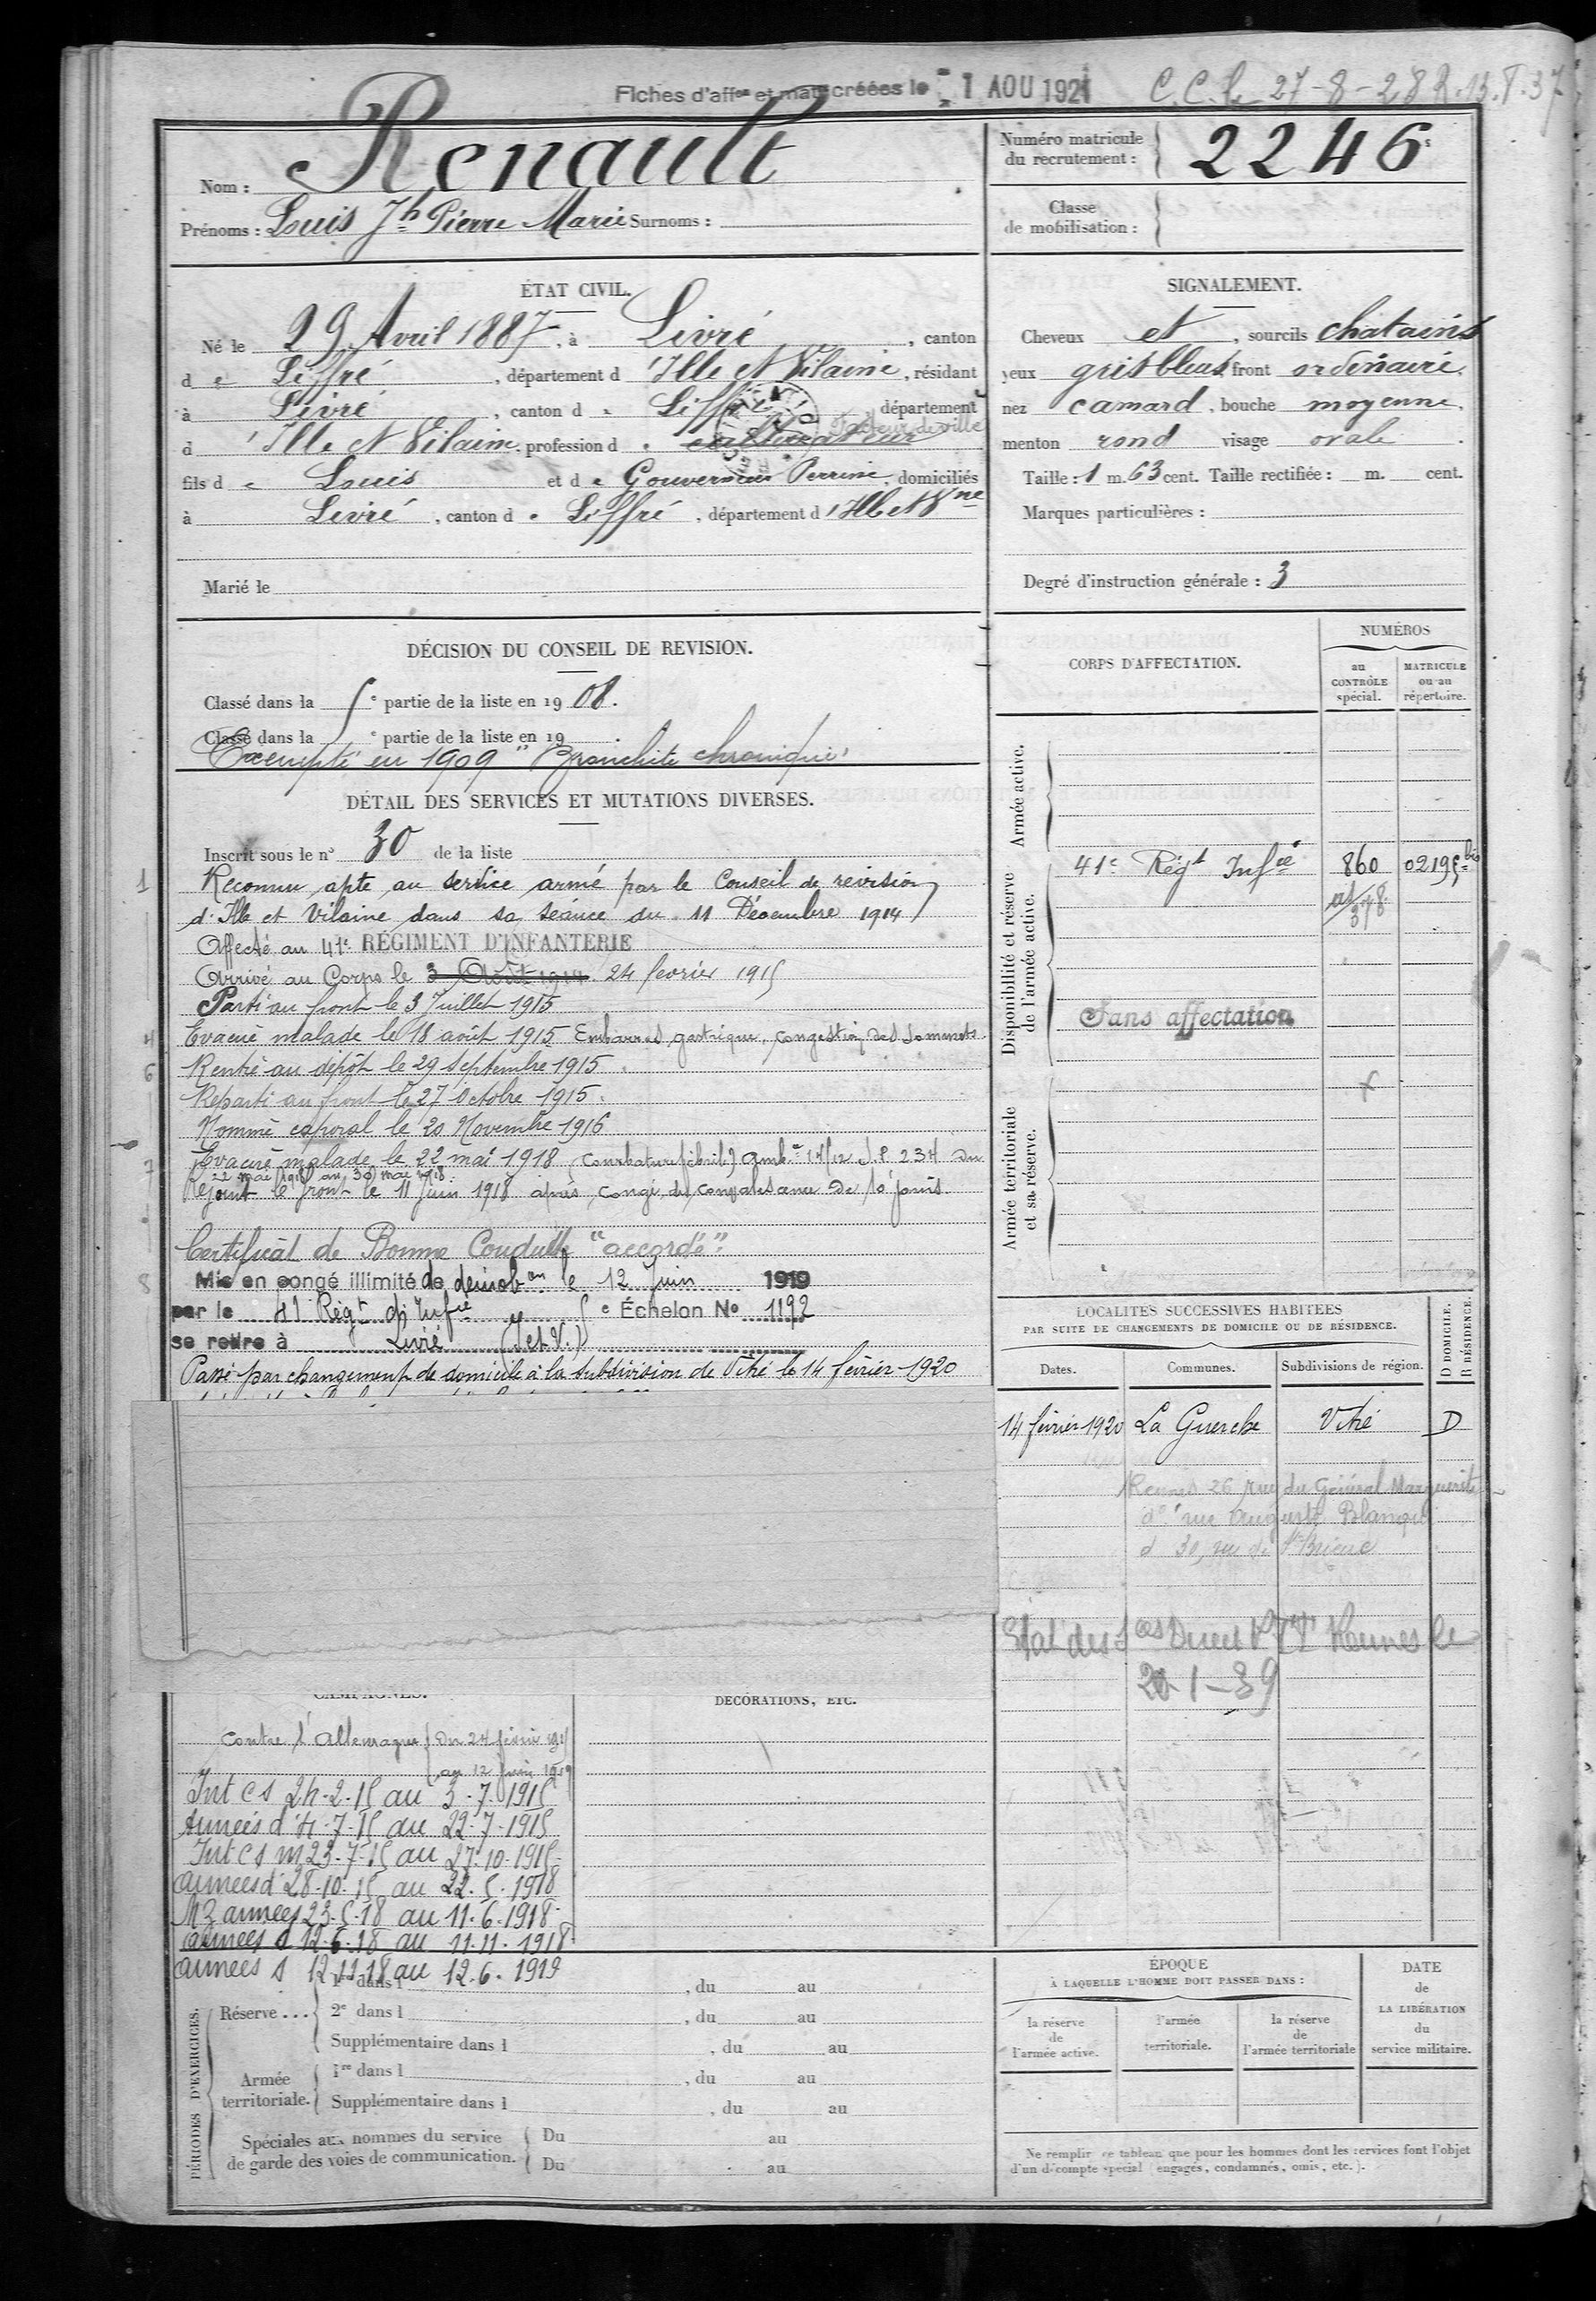 Fiches d'aff^on et mat^le créées le - 1 AOU 1921
C.C. le 27-8-28 R.13.T.37
Nom : Renault
Prénoms : Louis J^h Pierre Marie Surnoms :
Numéro matricule du recrutement : 2246
Classe de mobilisation :
ÉTAT CIVIL.
Né le 29 Avril 1887, à Livré, canton
de Liffré, département d'Ille et Vilaine, résidant
à Livré, canton de Liffré département
d'Ille et Vilaine, profession de cultivateur Facteur de ville
fils de Louis et de Gouverneur Perrine, domiciliés
à Livré, canton de Liffré, département d'Ille et V^ne
Marié le
SIGNALEMENT.
Cheveux et, sourcils chatains
yeux gris bleus, front ordinaire,
nez camard, bouche moyenne,
menton rond visage ovale.
Taille : 1 m. 63 cent. Taille rectifiée : m. cent.
Marques particulières :
Degré d'instruction générale : 3
DÉCISION DU CONSEIL DE REVISION.
Classé dans la 5e partie de la liste en 1908.
Classé dans la e partie de la liste en 19 .
Exempté en 1909 "Bronchite chronique"
DÉTAIL DES SERVICES ET MUTATIONS DIVERSES.
Inscrit sous le n° 30 de la liste
1
Reconnu apte au service armé par le Conseil de revision
d'Ille et Vilaine dans sa séance du 11 Décembre 1914
Affecté au 41e RÉGIMENT D'INFANTERIE
Arrivé au Corps le 3 Août 1914 24 fevrier 1915
Parti au front le 3 Juillet 1915
4
Evacué malade le 18 août 1915 Embarras gastrique, congestion des sommets
6
Rentré au dépôt le 29 septembre 1915
Reparti au front le 27 Octobre 1915.
Nommé caporal le 20 Novembre 1916
7
Evacué malade le 22 mai 1918 (courbature fébrile) amb^ce 14/12 S.P. 234 du
22 mai 1918 au 30 mai 1918.
Rejoint le front le 11 Juin 1918 après congé de convalescence de 10 jours
Certificat de Bonne Conduite "accordé".
8
Mis en congé illimité de démob^on le 12 Juin 1919
par le 41 Rég^t d'Inf^ie 5e Échelon No 1192
se retire à Livré (I et V.)
Passé par changement de domicile à la subdivision de Vitré le 14 février 1920
CORPS D'AFFECTATION.
NUMÉROS
au CONTRÔLE spécial.
MATRICULE ou au répertoire.
Armée active.
Disponibilité et réserve de l'armée active.
41e Rég^t Inf^ie 860 02195^bis
378
Sans affectation
Armée territoriale et sa réserve.
LOCALITÉS SUCCESSIVES HABITÉES
PAR SUITE DE CHANGEMENTS DE DOMICILE OU DE RÉSIDENCE.
Dates. Communes. Subdivisions de région. D DOMICILE. R RÉSIDENCE.
14 février 1920 La Guerche Vitré D
Rennes 26 rue du Général Margueritte
d° rue Auguste Blanqui
d 30, rue de S^t Brieuc
Rennes le
20-1-39
CAMPAGNES.
Contre l'Allemagne du 24 février 1915
au 12 juin 1919
Int C s 24-2-15 au 3-7-1915
Armées d 4-7-15 au 22-7-1915
Int C s m 23-7-15 au 27-10-1915
armées d 28-10-15 au 22-5-1918
M3 armées 23-5-18 au 11-6-1918
armées d 12-6-18 au 11-11-1918
armées s 12-11-18 au 12-6-1919
DÉCORATIONS, ETC.
PÉRIODES D'EXERCICES.
Réserve ...
1re dans l , du au
2e dans l , du au
Supplémentaire dans l , du au
Armée territoriale.
1re dans l , du au
Supplémentaire dans l , du au
Spéciales aux hommes du service de garde des voies de communication.
Du au
Du au
ÉPOQUE
À LAQUELLE L'HOMME DOIT PASSER DANS :
la réserve de l'armée active.
l'armée territoriale.
la réserve de l'armée territoriale
DATE de LA LIBÉRATION du service militaire.
Ne remplir ce tableau que pour les hommes dont les services font l'objet
d'un décompte spécial (engagés, condamnés, omis, etc.).